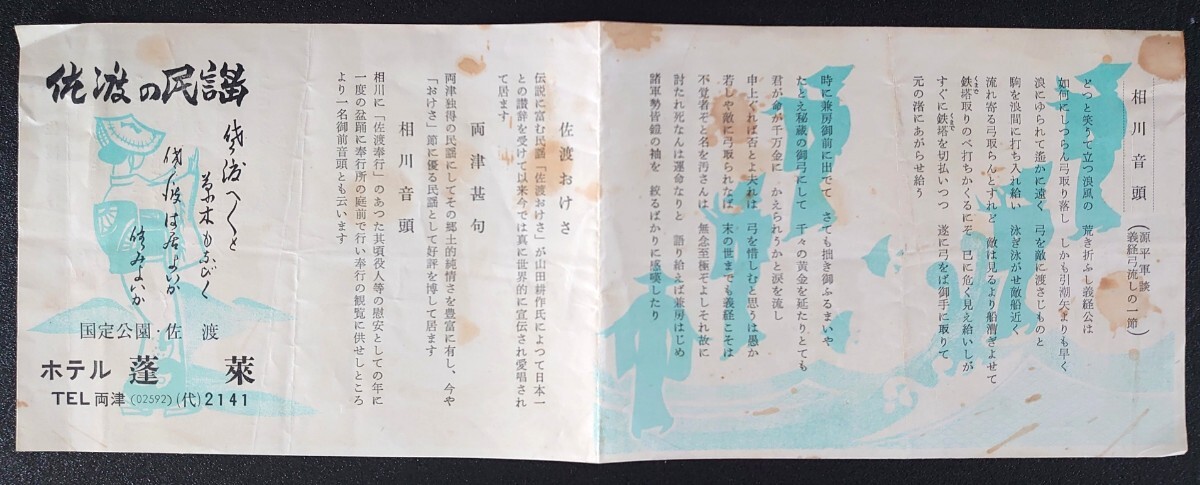 相川音頭
(源平軍談
義経弓流しの一節)
どっと笑うて立つ浪風の 荒き折ふし義経公は
如何にしつらん弓取り落し しかも引潮矢よりも早く
浪にゆられて遙かに遠く 弓を敵に渡さじものと
駒を浪間に打ち入れ給い 泳ぎ泳がせ敵船近く
流れ寄る弓取らんとすれど 敵は見るより船漕ぎよせて
鉄塔取りのべ打ちかくるにぞ 已に危く見え給いしが
すぐに鉄塔を切払いつつ 遂に弓をば御手に取りて
元の渚にあがらせ給う
時に兼房御前に出でて さても拙き御ふるまいや
たとえ秘蔵の御弓にして 千々の黄金を延たりとても
君が命が千万金に かえられうかと涙を流し
申上ぐれば否とよ夫れは 弓を惜しむと思うは愚か
若しや敵に弓取られなば 末の世までも義経こそは
不覚者ぞと名を汚さんは 無念至極ぞよしそれ故に
討たれ死なんは運命なりと 語り給えば兼房はじめ
諸軍勢皆鎧の袖を 絞るばかりに感嘆したり
佐渡おけさ
伝説に富む民謡「佐渡おけさ」が山田耕作氏によつて日本一
との讃辞を受けて以来今では真に世界的に宣伝され愛唱され
て居ます
両津甚句
両津独得の民謡にしてその郷土的純情さを豊富に有し、今や
「おけさ」節に優る民謡として好評を博して居ます
相川音頭
相川に「佐渡奉行」のあつた其頃役人等の慰安としての年に
一度の盆踊に奉行所の庭前で行い奉行の観覧に供せしところ
より一名御前音頭とも云います
佐渡の民謡
佐渡へ〱と
草木もなびく
佐渡は居よいか
住みよいか
国定公園・佐渡
ホテル 蓬萊
TEL 両津 (02592) (代) 2141